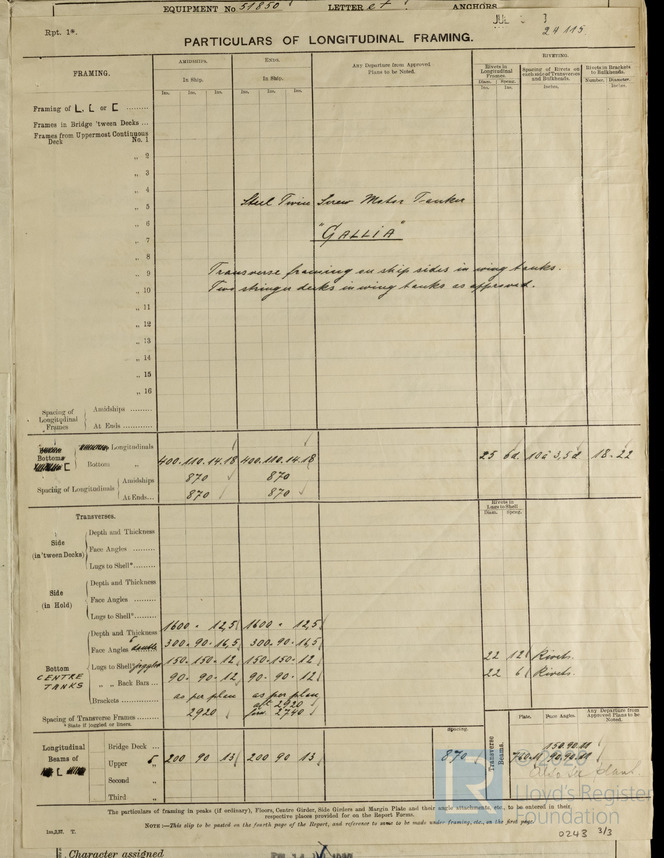 EQUIPMENT No. 51850 LETTER et ANCHORS
Rpt. 1*.
24115
PARTICULARS OF LONGITUDINAL FRAMING.
FRAMING.
AMIDSHIPS.
ENDS.
Any Departure from Approved Plans to be Noted.
RIVETING.
In Ship.
In Ship.
Rivets in Longitudinal Frames.
Spacing of Rivets on each side of Transverses and Bulkheads.
Rivets in Brackets to Bulkheads.
Diam. Spcng.
Number. Diameter.
Ins. Ins. Ins. Ins. Ins. Ins. Ins. Ins. Inches. Inches.
Framing of L, [ or [
Frames in Bridge 'tween Decks ...
Frames from Uppermost Continuous Deck No. 1
„ 2
„ 3
„ 4
„ 5
Steel Twin Screw Motor Tanker
„ 6
"GALLIA"
„ 7
„ 8
„ 9
Transverse framing on ship sides in wing tanks.
„ 10
Two stringer decks in wing tanks as approved.
„ 11
„ 12
„ 13
„ 14
„ 15
„ 16
Spacing of Longitudinal Frames
Amidships
At Ends
Longitudinals
Bottom [
Bottom „ 400.110.14.18 400.110.14.18 25 6d 10 à 3,5d 18-22
Spacing of Longitudinals
Amidships 870 870
At Ends... 870 870
Transverses.
Rivets in Lugs to Shell
Diam. Spcng.
Side (in 'tween Decks)
Depth and Thickness
Face Angles
Lugs to Shell*
Side (in Hold)
Depth and Thickness
Face Angles
Lugs to Shell*
Bottom CENTRE TANKS
Depth and Thickness 1600 . 12,5 1600 . 12,5
Face Angles double 300.90.16,5 300.90.16,5
Lugs to Shell* joggled 150.150.12 150.150.12 22 12 Rivets.
„ „ Back Bars ... 90.90.12 90.90.12 22 6 Rivets.
Brackets as per plan as per plan
Spacing of Transverse Frames 2920 aft 2920
for 2740
* State if joggled or liners.
Plate. Face Angles. Any Departure from Approved Plans to be Noted.
Spacing.
Longitudinal Beams of L
Bridge Deck ...
Upper „ 200 90 13 200 90 13 870
Second „
Third „
Transverse Beams.
150.90.11
760.11 90.90.11
The particulars of framing in peaks (if ordinary), Floors, Centre Girder, Side Girders and Margin Plate and their angle attachments, etc., to be entered in their
respective places provided for on the Report Forms.
NOTE:—This slip to be pasted on the fourth page of the Report, and reference to same to be made under framing, etc., on the first page.
© 2020
Lloyd's Register
Foundation
0243 3/3
Character assigned